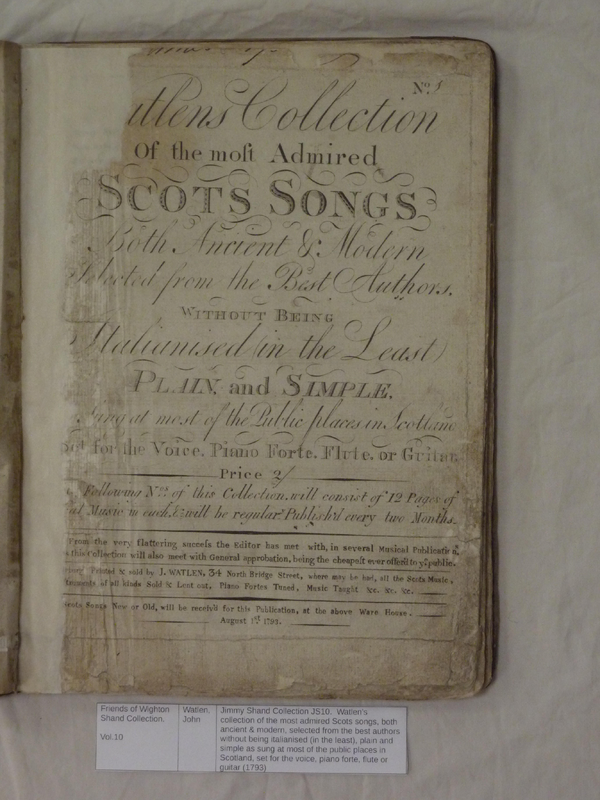 No. 1
tlens Collection
Of the most Admired
SCOTS SONGS
Both Ancient & Modern
Selected from the Best Authors.
WITHOUT BEING
Italianised (in the Least)
PLAIN, and SIMPLE.
Sung at most of the Public places in Scotland
Set for the Voice, Piano Forte, Flute, or Guitar.
Price 2/
Following Nos. of this Collection, will consist of 12 Pages of
Music in each, & will be regular. Publish'd every two Months.
From the very flattering success the Editor has met with, in several Musical Publication.
this Collection will also meet with General approbation, being the cheapest ever offer'd to ye. public.
Printed & sold by J. WATLEN, 34 North Bridge Street, where may be had, all the Scots Music,
Instruments of all kinds Sold & Lent out, Piano Fortes Tuned, Music Taught &c. &c. &c.
Scots Songs New or Old, will be receiv'd for this Publication, at the above Ware House.
August 1st. 1793.
Friends of Wighton
Shand Collection.
Vol.10
Watlen,
John
Jimmy Shand Collection JS10. Watlen's
collection of the most admired Scots songs, both
ancient & modern, selected from the best authors
without being italianised (in the least), plain and
simple as sung at most of the public places in
Scotland, set for the voice, piano forte, flute or
guitar (1793)